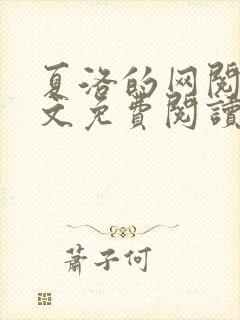 夏洛的网阅
文免費閱讀
蕭子何